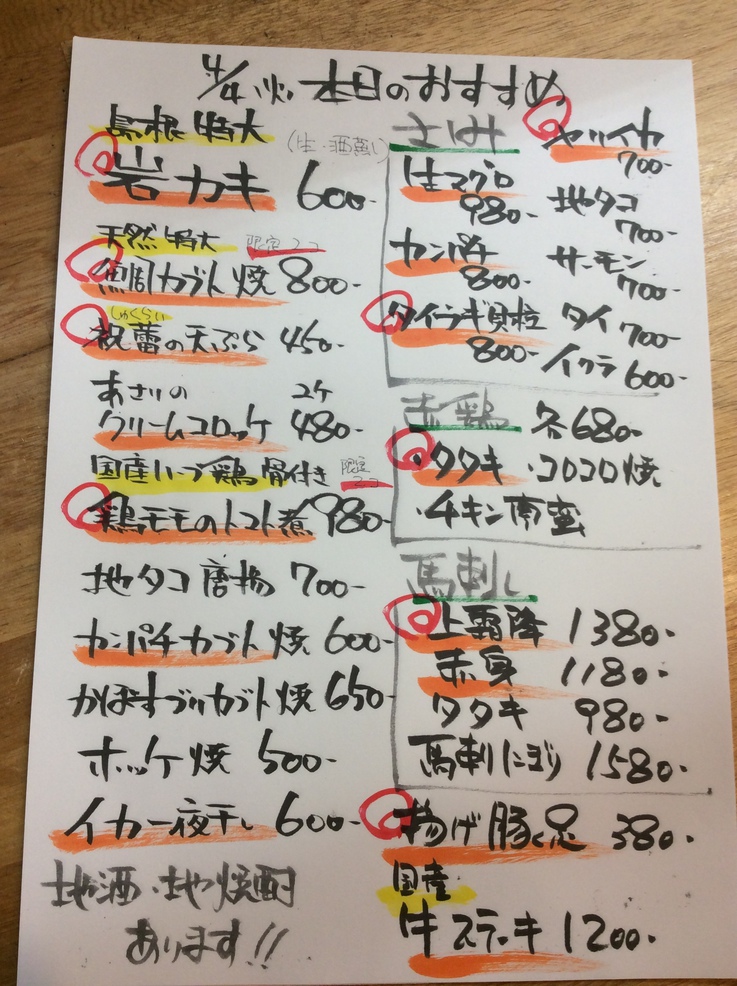 4/4(火) 本日のおすすめ
島根 特大
(生・酒蒸し)
岩カキ 600-
天然 特大 限定 2コ
カブト焼 800-
しゅくらい
祝蕾の天ぷら 450-
あさりの 2ケ
クリームコロッケ 480-
国産ハーブ鶏 骨付き 限定 2コ
鶏モモのトマト煮 980-
地タコ唐揚 700-
カンパチカブト焼 600-
かぼすブリカブト焼 650-
ホッケ焼 500-
イカ一夜干し 600-
地酒・地焼酎
あります!!
さしみ
生マグロ
980-
カンパチ
800-
タイラギ貝柱
800-
ヤリイカ
700-
地タコ
700-
サーモン
700-
タイ 700-
イクラ 600-
赤鶏 各680-
・タタキ ・コロコロ焼
・チキン南蛮
馬刺し
上霜降 1380-
赤身 1180-
タタキ 980-
馬刺にぎり 1580-
揚げ豚足 380-
国産
牛ステーキ 1200-